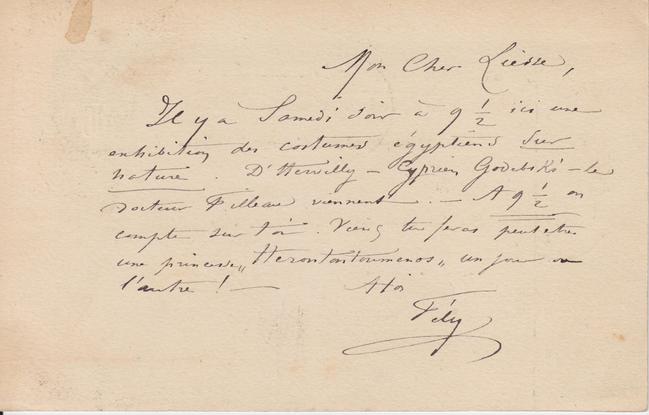 Mon Cher Liesse,
Il y a Samedi soir à 9 1/2 ici une
exhibition des costumes égyptiens sur
nature. D'Hervilly – Cyprien Godebski – le
docteur Filleau viennent. – A 9 1/2 on
compte sur toi. Viens tu feras peut etre
une princesse „Herontontoumenos„ un jour ou
l'autre ! –
A toi
Fély